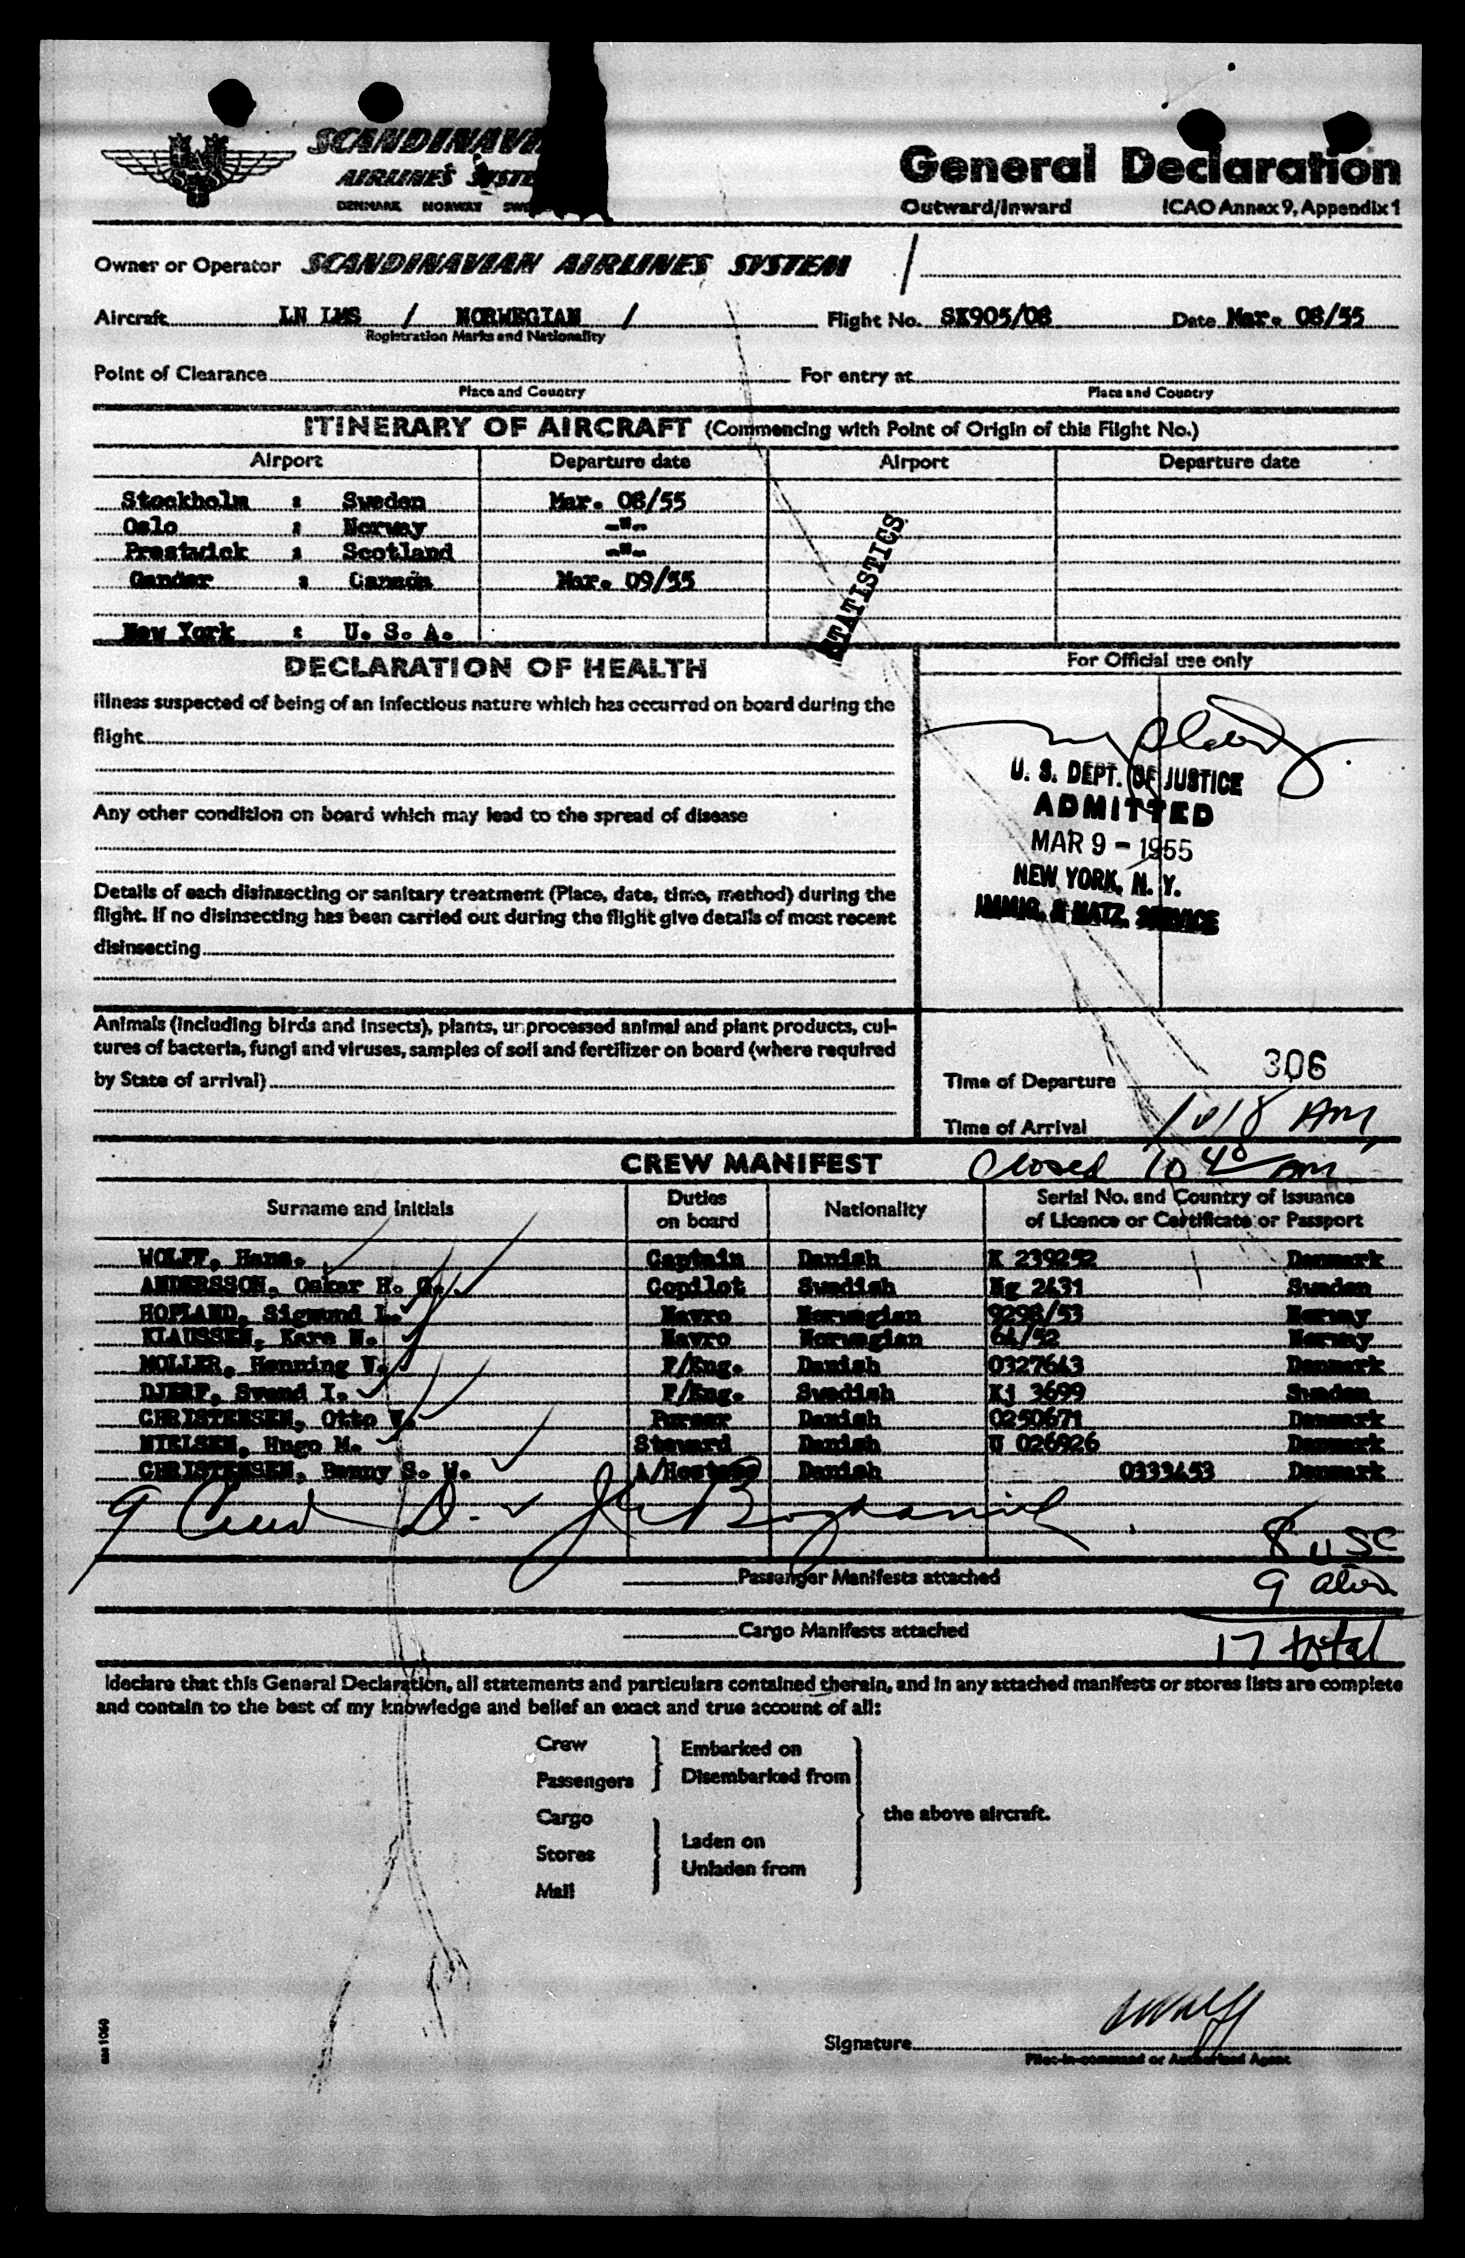 SCANDINAVI
AIRLINES SYSTE
DENMARK NORWAY SWE
General Declaration
Outward/Inward ICAO Annex 9, Appendix 1
Owner or Operator SCANDINAVIAN AIRLINES SYSTEM /
Aircraft LN LMS / NORWEGIAN / Flight No. SK905/08 Date Mar. 08/55
Registration Marks and Nationality
Point of Clearance For entry at
Place and Country Place and Country
ITINERARY OF AIRCRAFT (Commencing with Point of Origin of this Flight No.)
Airport Departure date Airport Departure date
Stockholm : Sweden Mar. 08/55
Oslo : Norway -"-
Prestwick : Scotland -"-
Gander : Canada Mar. 09/55
New York : U. S. A.
STATISTICS
DECLARATION OF HEALTH
Illness suspected of being of an infectious nature which has occurred on board during the
flight
Any other condition on board which may lead to the spread of disease
Details of each disinsecting or sanitary treatment (Place, date, time, method) during the
flight. If no disinsecting has been carried out during the flight give details of most recent
disinsecting
Animals (including birds and insects), plants, unprocessed animal and plant products, cul-
tures of bacteria, fungi and viruses, samples of soil and fertilizer on board (where required
by State of arrival)
For Official use only
U. S. DEPT. OF JUSTICE
ADMITTED
MAR 9 - 1955
NEW YORK, N. Y.
IMMIG. & NATZ. SERVICE
306
Time of Departure
Time of Arrival 1018 AM
CREW MANIFEST Closed 10 40 AM
Surname and Initials Duties on board Nationality Serial No. and Country of Issuance of Licence or Certificate or Passport
WOLFF, Hans. Captain Danish K 239252 Denmark
ANDERSSON, Oskar H. G. Copilot Swedish Ng 2431 Sweden
HOFLAND, Sigmund L. Navro Norwegian 9298/53 Norway
KLAUSSEN, Kare N. Navro Norwegian 64/52 Norway
MOLLER, Henning V. F/Eng. Danish 0327643 Denmark
DJERF, Svend I. F/Eng. Swedish Kj 3699 Sweden
CHRISTENSEN, Otto V. Purser Danish 0250671 Denmark
NIELSEN, Hugo M. Steward Danish U 026926 Denmark
CHRISTENSEN, Benny S. W. A/Hostess Danish 0333453 Denmark
9 Crew
8 USC
Passenger Manifests attached 9 alien
Cargo Manifests attached 17 total
I declare that this General Declaration, all statements and particulars contained therein, and in any attached manifests or stores lists are complete
and contain to the best of my knowledge and belief an exact and true account of all:
Crew
Passengers
Embarked on
Disembarked from
Cargo
Stores
Mail
Laden on
Unladen from
the above aircraft.
Signature
Pilot-in-command or Authorized Agent